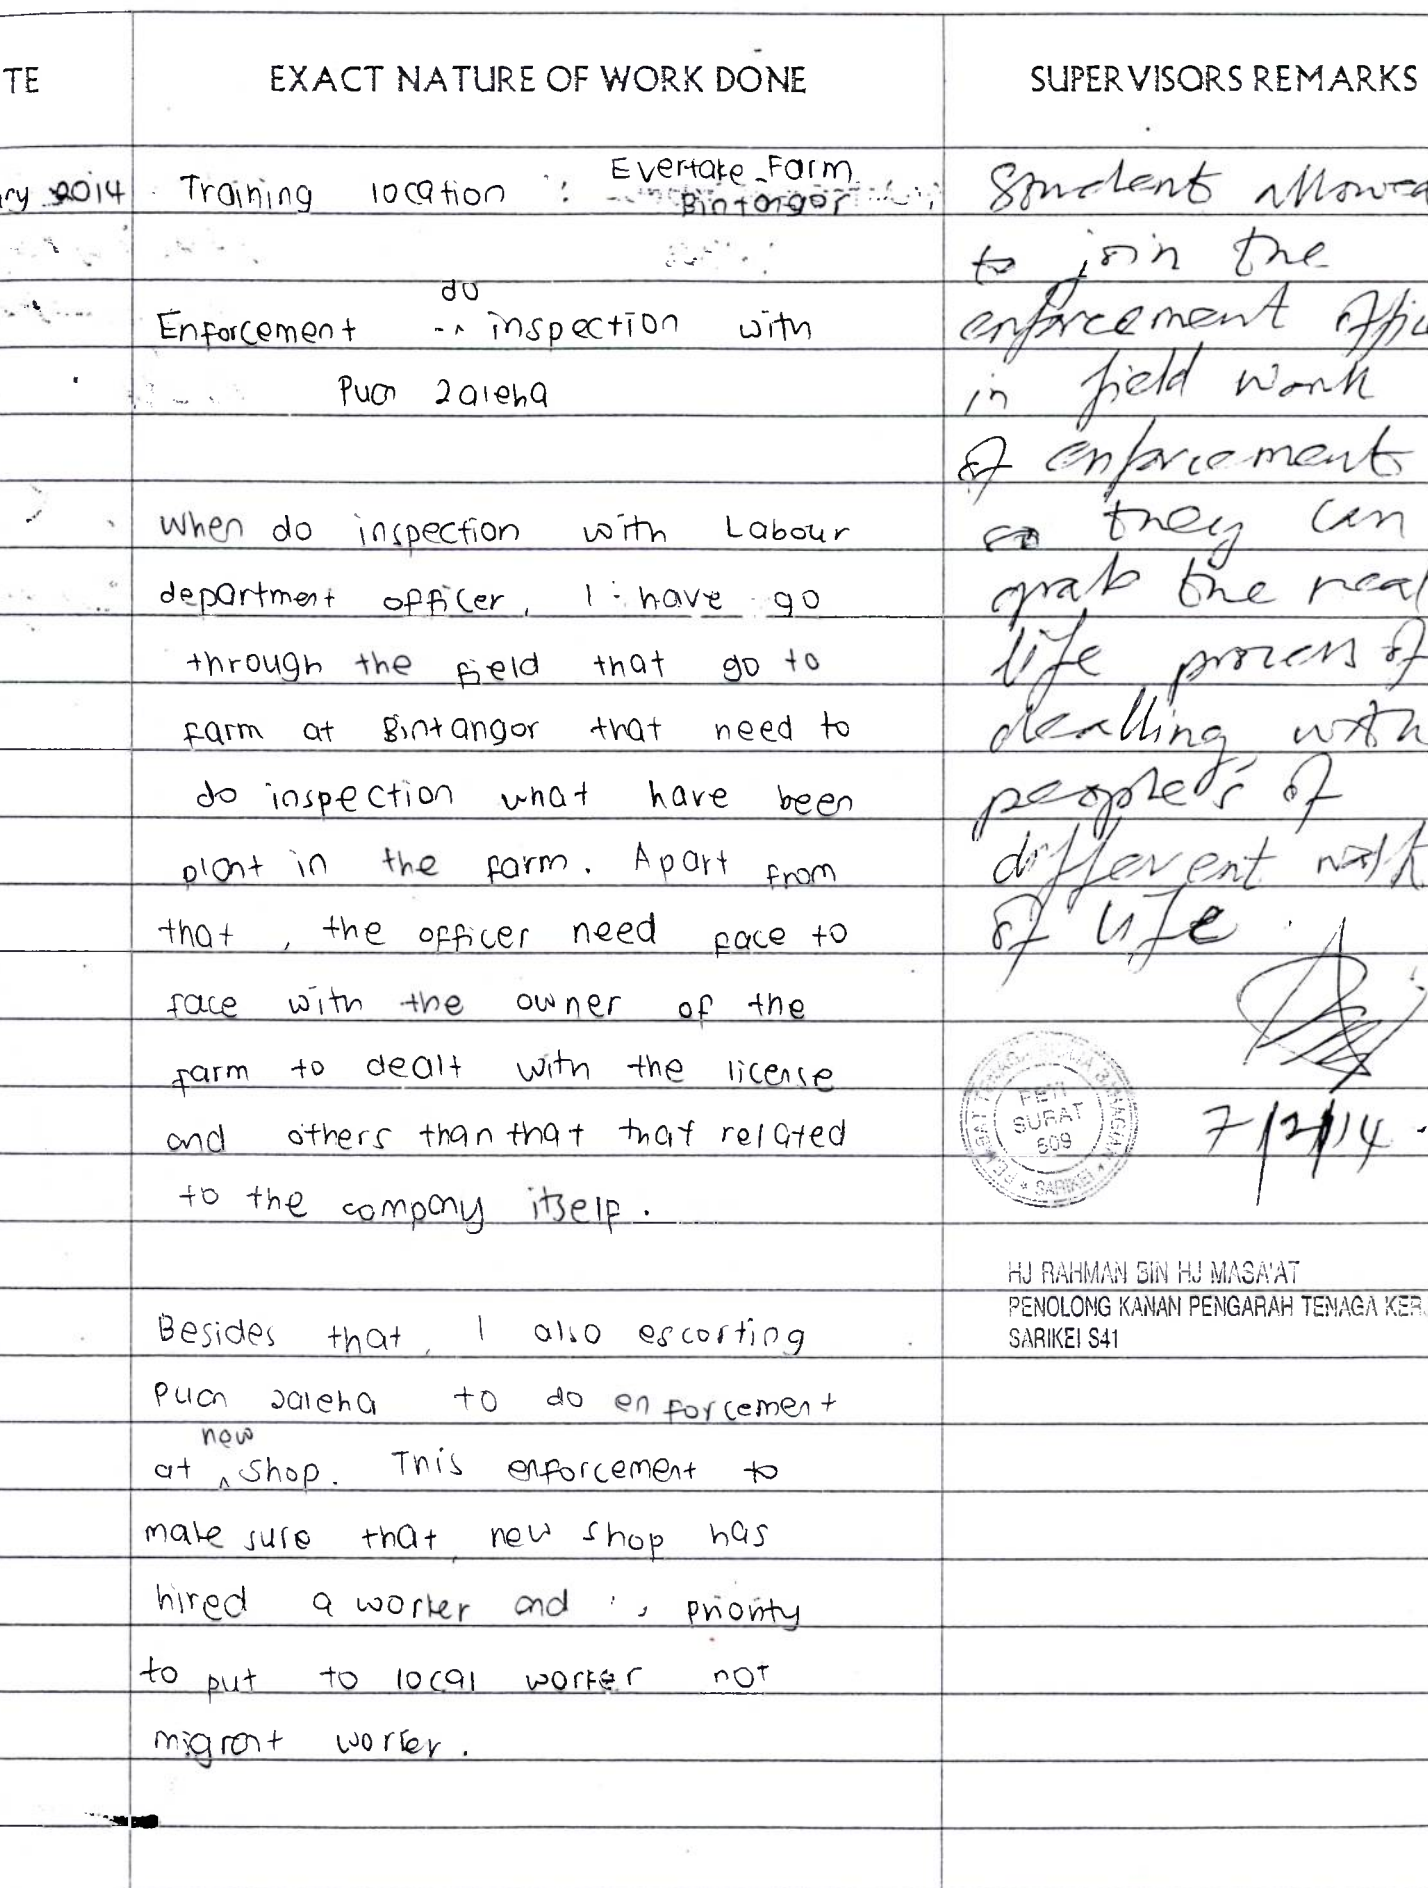 TE
EXACT NATURE OF WORK DONE
SUPERVISORS REMARKS
ry 2014
Training location : Evertake Farm
Bintangor
do
Enforcement inspection with
Puan Zaleha
When do inspection with Labour
department officer, I have go
through the field that go to
farm at Bintangor that need to
do inspection what have been
plant in the farm. Apart from
that, the officer need face to
face with the owner of the
farm to dealt with the license
and others than that that related
to the company itself.
Besides that, I also escorting
Puan Zaleha to do enforcement
new
at ^ shop. This enforcement to
make sure that new shop has
hired a worker and priority
to put to local worker not
migrant worker.
Student allowed
to join the
enforcement offic
in field work
of enforcement
so they can
grab the real
life process of
dealling with
people's of
different walk
of life.
7/2/14.
PETI
SURAT
609
SARIKEI
HJ RAHMAN BIN HJ MASA'AT
PENOLONG KANAN PENGARAH TENAGA KER
SARIKEI S41